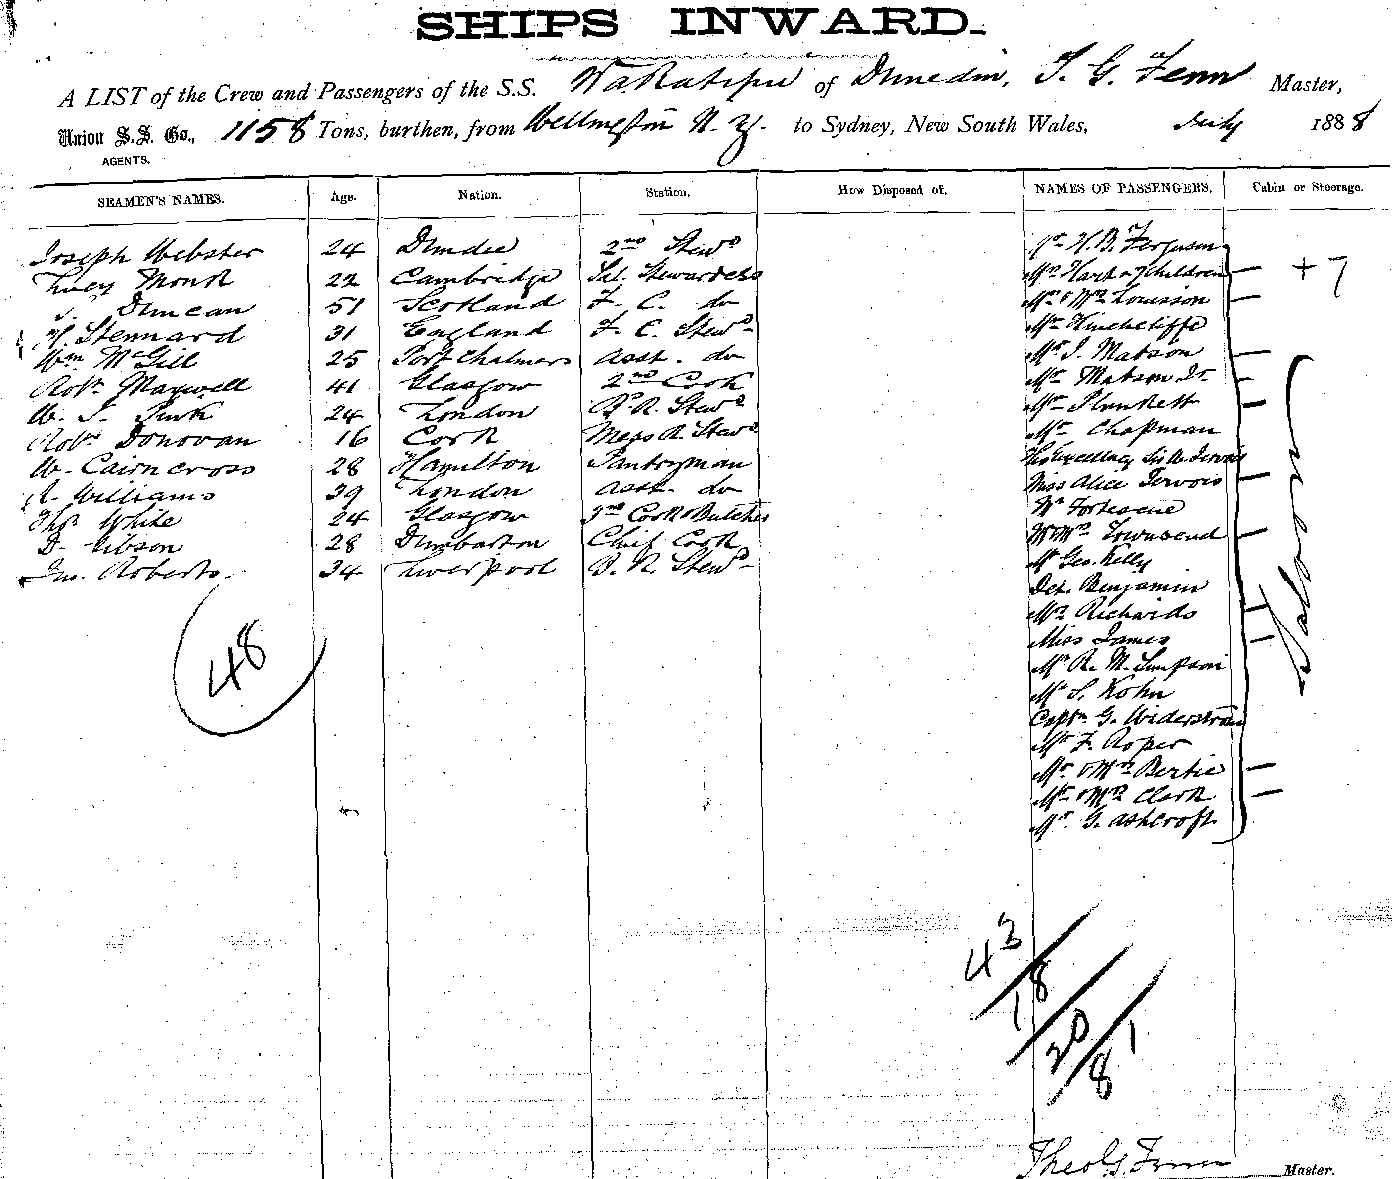 SHIPS INWARD.
A LIST of the Crew and Passengers of the S.S. Wakatipu of Dunedin, T. G. Fenn Master,
Union S.S. Co., 1158 Tons, burthen, from Wellington N. Z. to Sydney, New South Wales, July 1888
AGENTS.
SEAMEN'S NAMES. Age. Nation. Station. How Disposed of. NAMES OF PASSENGERS. Cabin or Steerage.
Joseph Webster 24 Dundee 2nd Stewd Mr H. B. Ferguson
Lucy Monk 22 Cambridge Sal. Stewardess Mrs Hart & 7 Children + 7
Duncan 51 Scotland F. C. do Mr & Mrs Louisson
H. Stennard 31 England F. C. Stewd Mr Hinchcliffe
Wm McGill 25 Port Chalmers Asst. do Mr J. Matson
Robt Maxwell 41 Glasgow 2nd Cook Mr Matson Jr
W. S. 24 London B. R. Stewd Mr Plunkett
Robt Donovan 16 Cork Mess R. Stewd Mr Chapman
W. Cairncross 28 Hamilton Pantryman His Excellency Sir W. Jervois
A. Williams 39 London Asst. do Miss Alice Jervois
Thos White 24 Glasgow 3rd Cook & Butcher Mr Fortescue
D. Gibson 28 Dumbarton Chief Cook Mr & Mrs Townsend
Jno. Roberts 34 Liverpool B. R. Stewd Mr Geo. Kelly
Det. Benjamin
Mrs Richards
Miss James
Mr R. M. Simpson
Mr S. Kohn
Captn G. Widerstrom
Mr F. Roper
Mr & Mrs Bertie
Mr & Mrs Clark
Mr G. Ashcroft
Saloon
48
43/18/20/81
Theo G. Fenn Master.